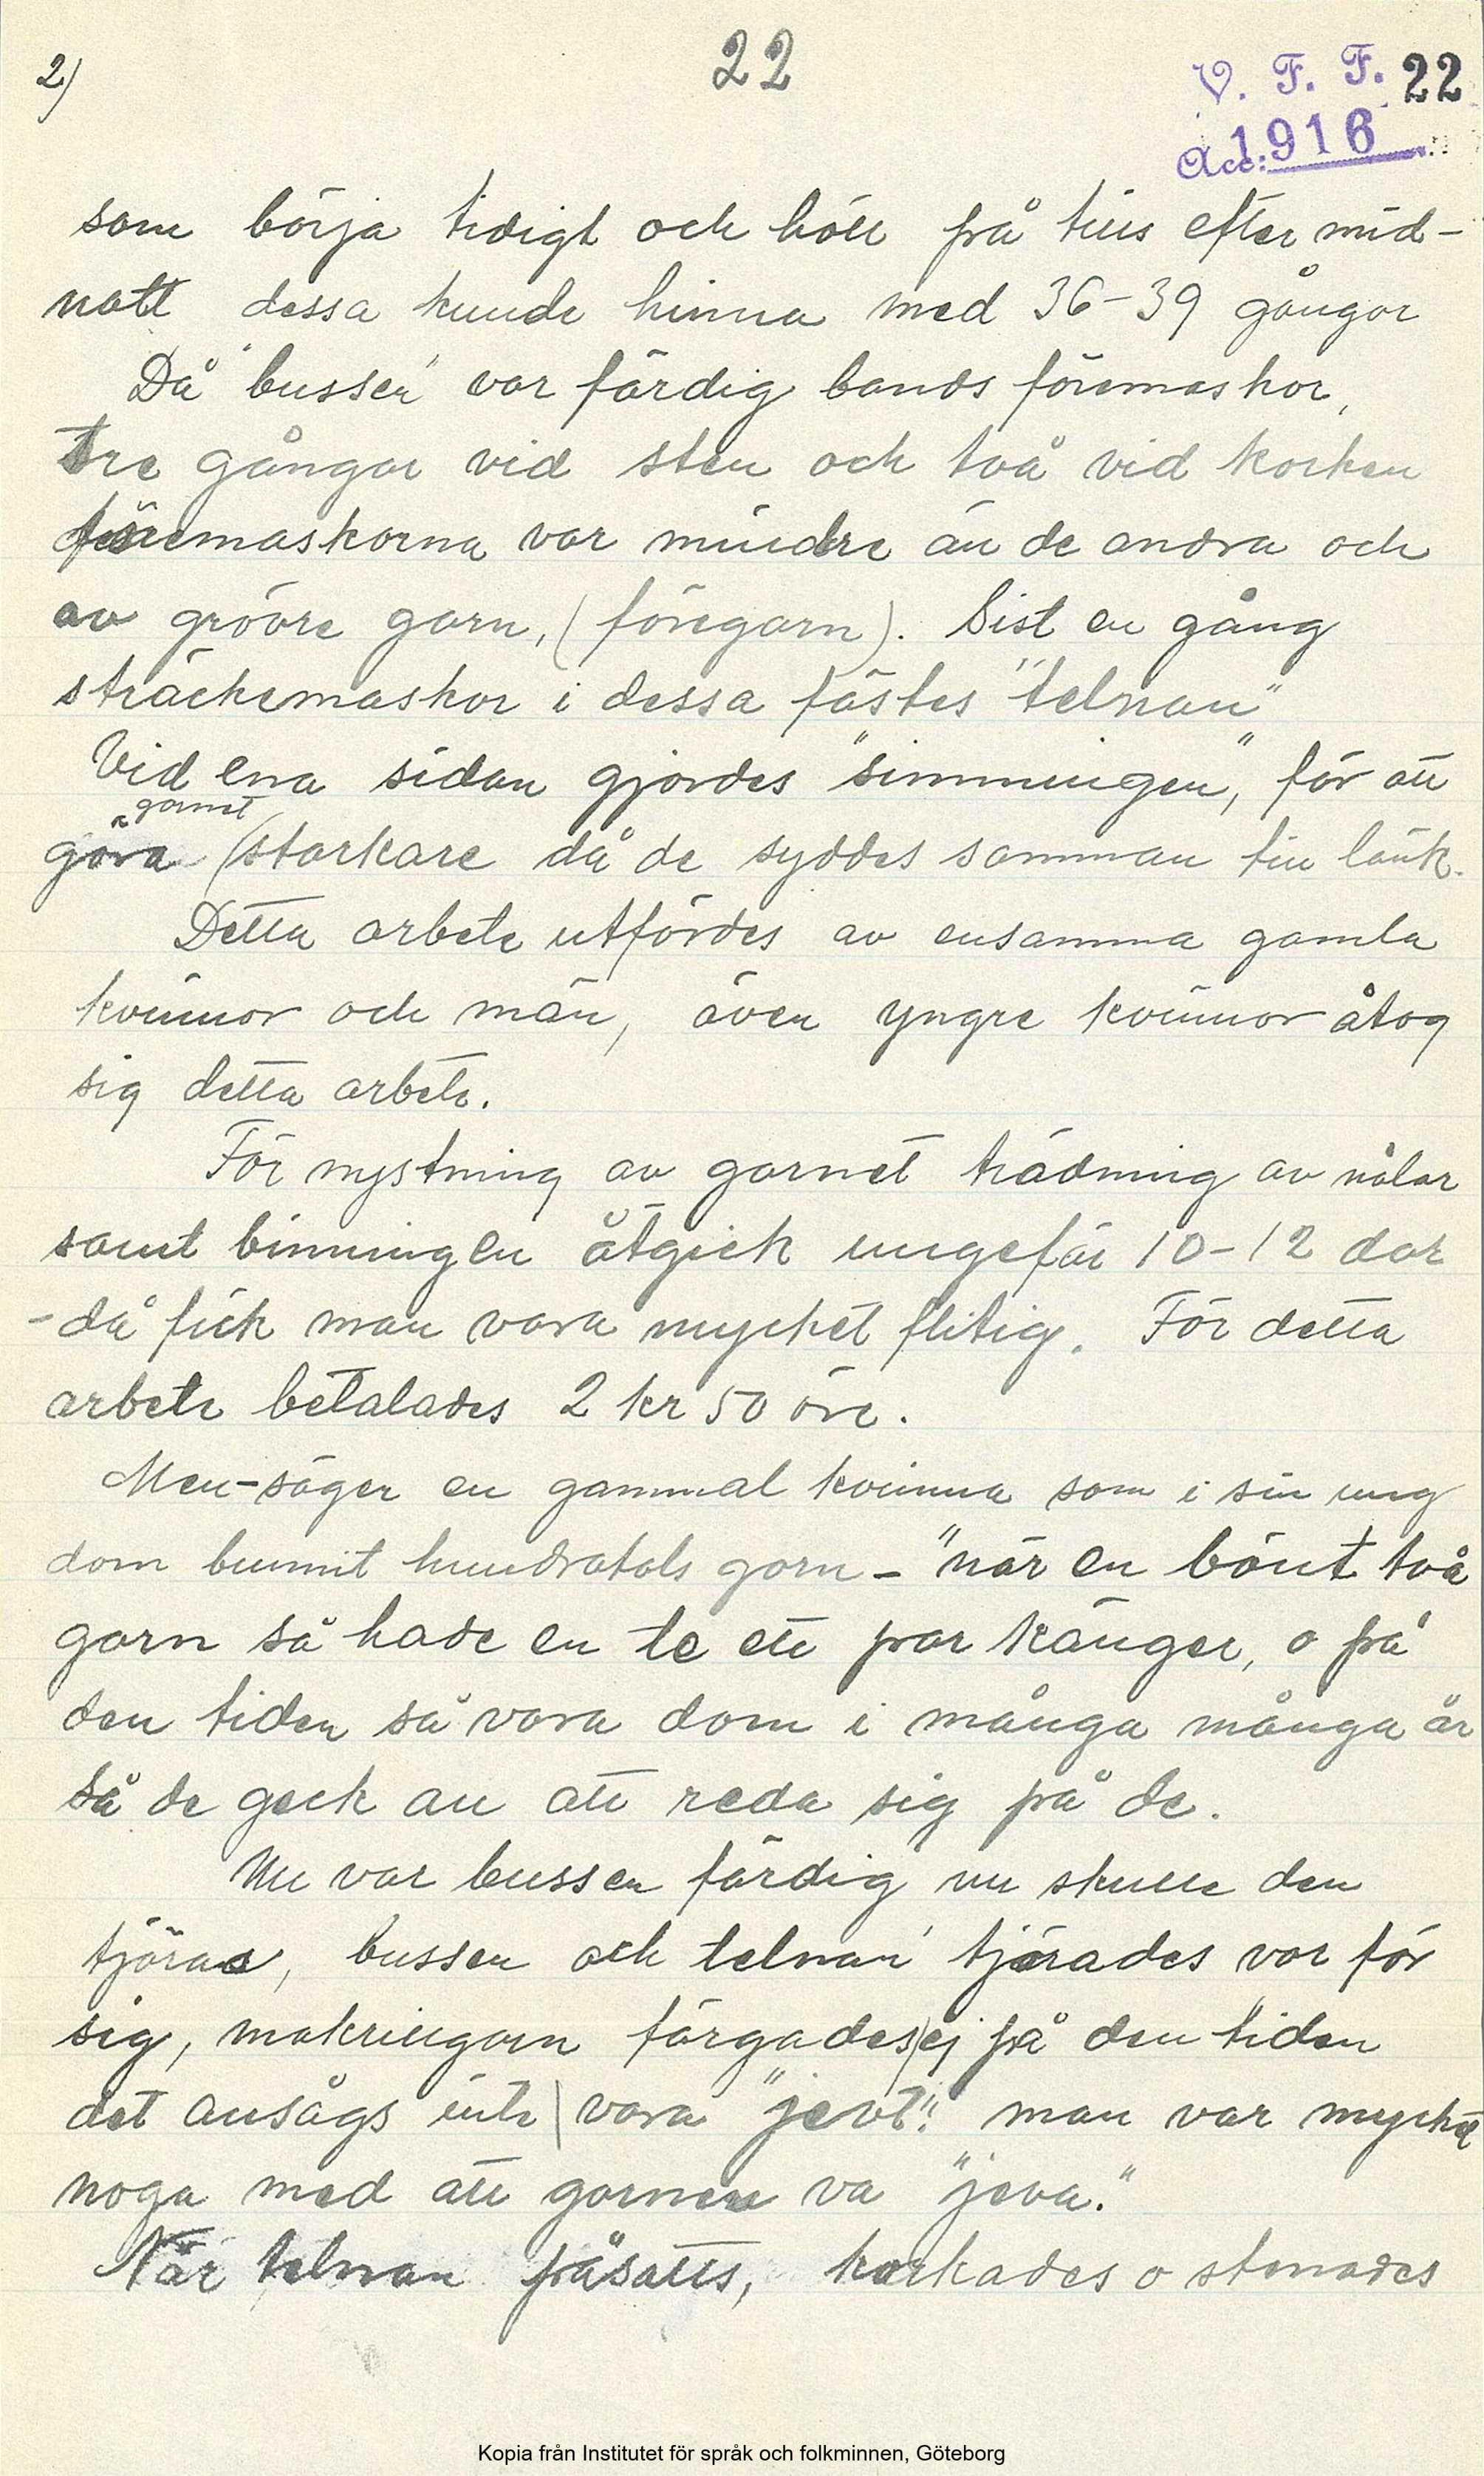 2)
22
V. F. F. 22
Acc: 1916
som börja tidigt och höll på tills efter mid-
natt dessa kunde hinna med 36-39 gångor
Då "bussen" var färdig bands föremaskor,
tre gångar vid sten och två vid korken
föremaskorna var mindre än de andra och
av grövre garn, (föregarn). Sist en gång
sträckemaskor i dessa fästes "telnan"
Vid ena sidan gjordes "simmingen", för att
garnet
göra (starkare då de syddes samman till länk.
Detta arbete utfördes av ensamma gamla
kvinnor och män, även yngre kvinnor åtog
sig detta arbete.
För nystning av garnet trädning av nålar
samt binningen åtgick ungefär 10-12 dar
- då fick man vara mycket flitig. För detta
arbete betalades 2 kr 50 öre.
Men-säger en gammal kvinna som i sin ung
dom bunnit hundratals garn - "när en bönt två
garn så hade en te ett par känger, o på
den tiden så vara dom i många många år
så de geck an att reda sig på de.
Nu var bussen färdig nu skulle den
tjäras, bussen och telnan tjärades var för
sig, makrillgarn färgades) ej på den tiden
det ansågs inte | vara "jevt". man var mycket
noga med att garnen va "jeva."
När telnan påsatts, korkades o stenades
Kopia från Institutet för språk och folkminnen, Göteborg